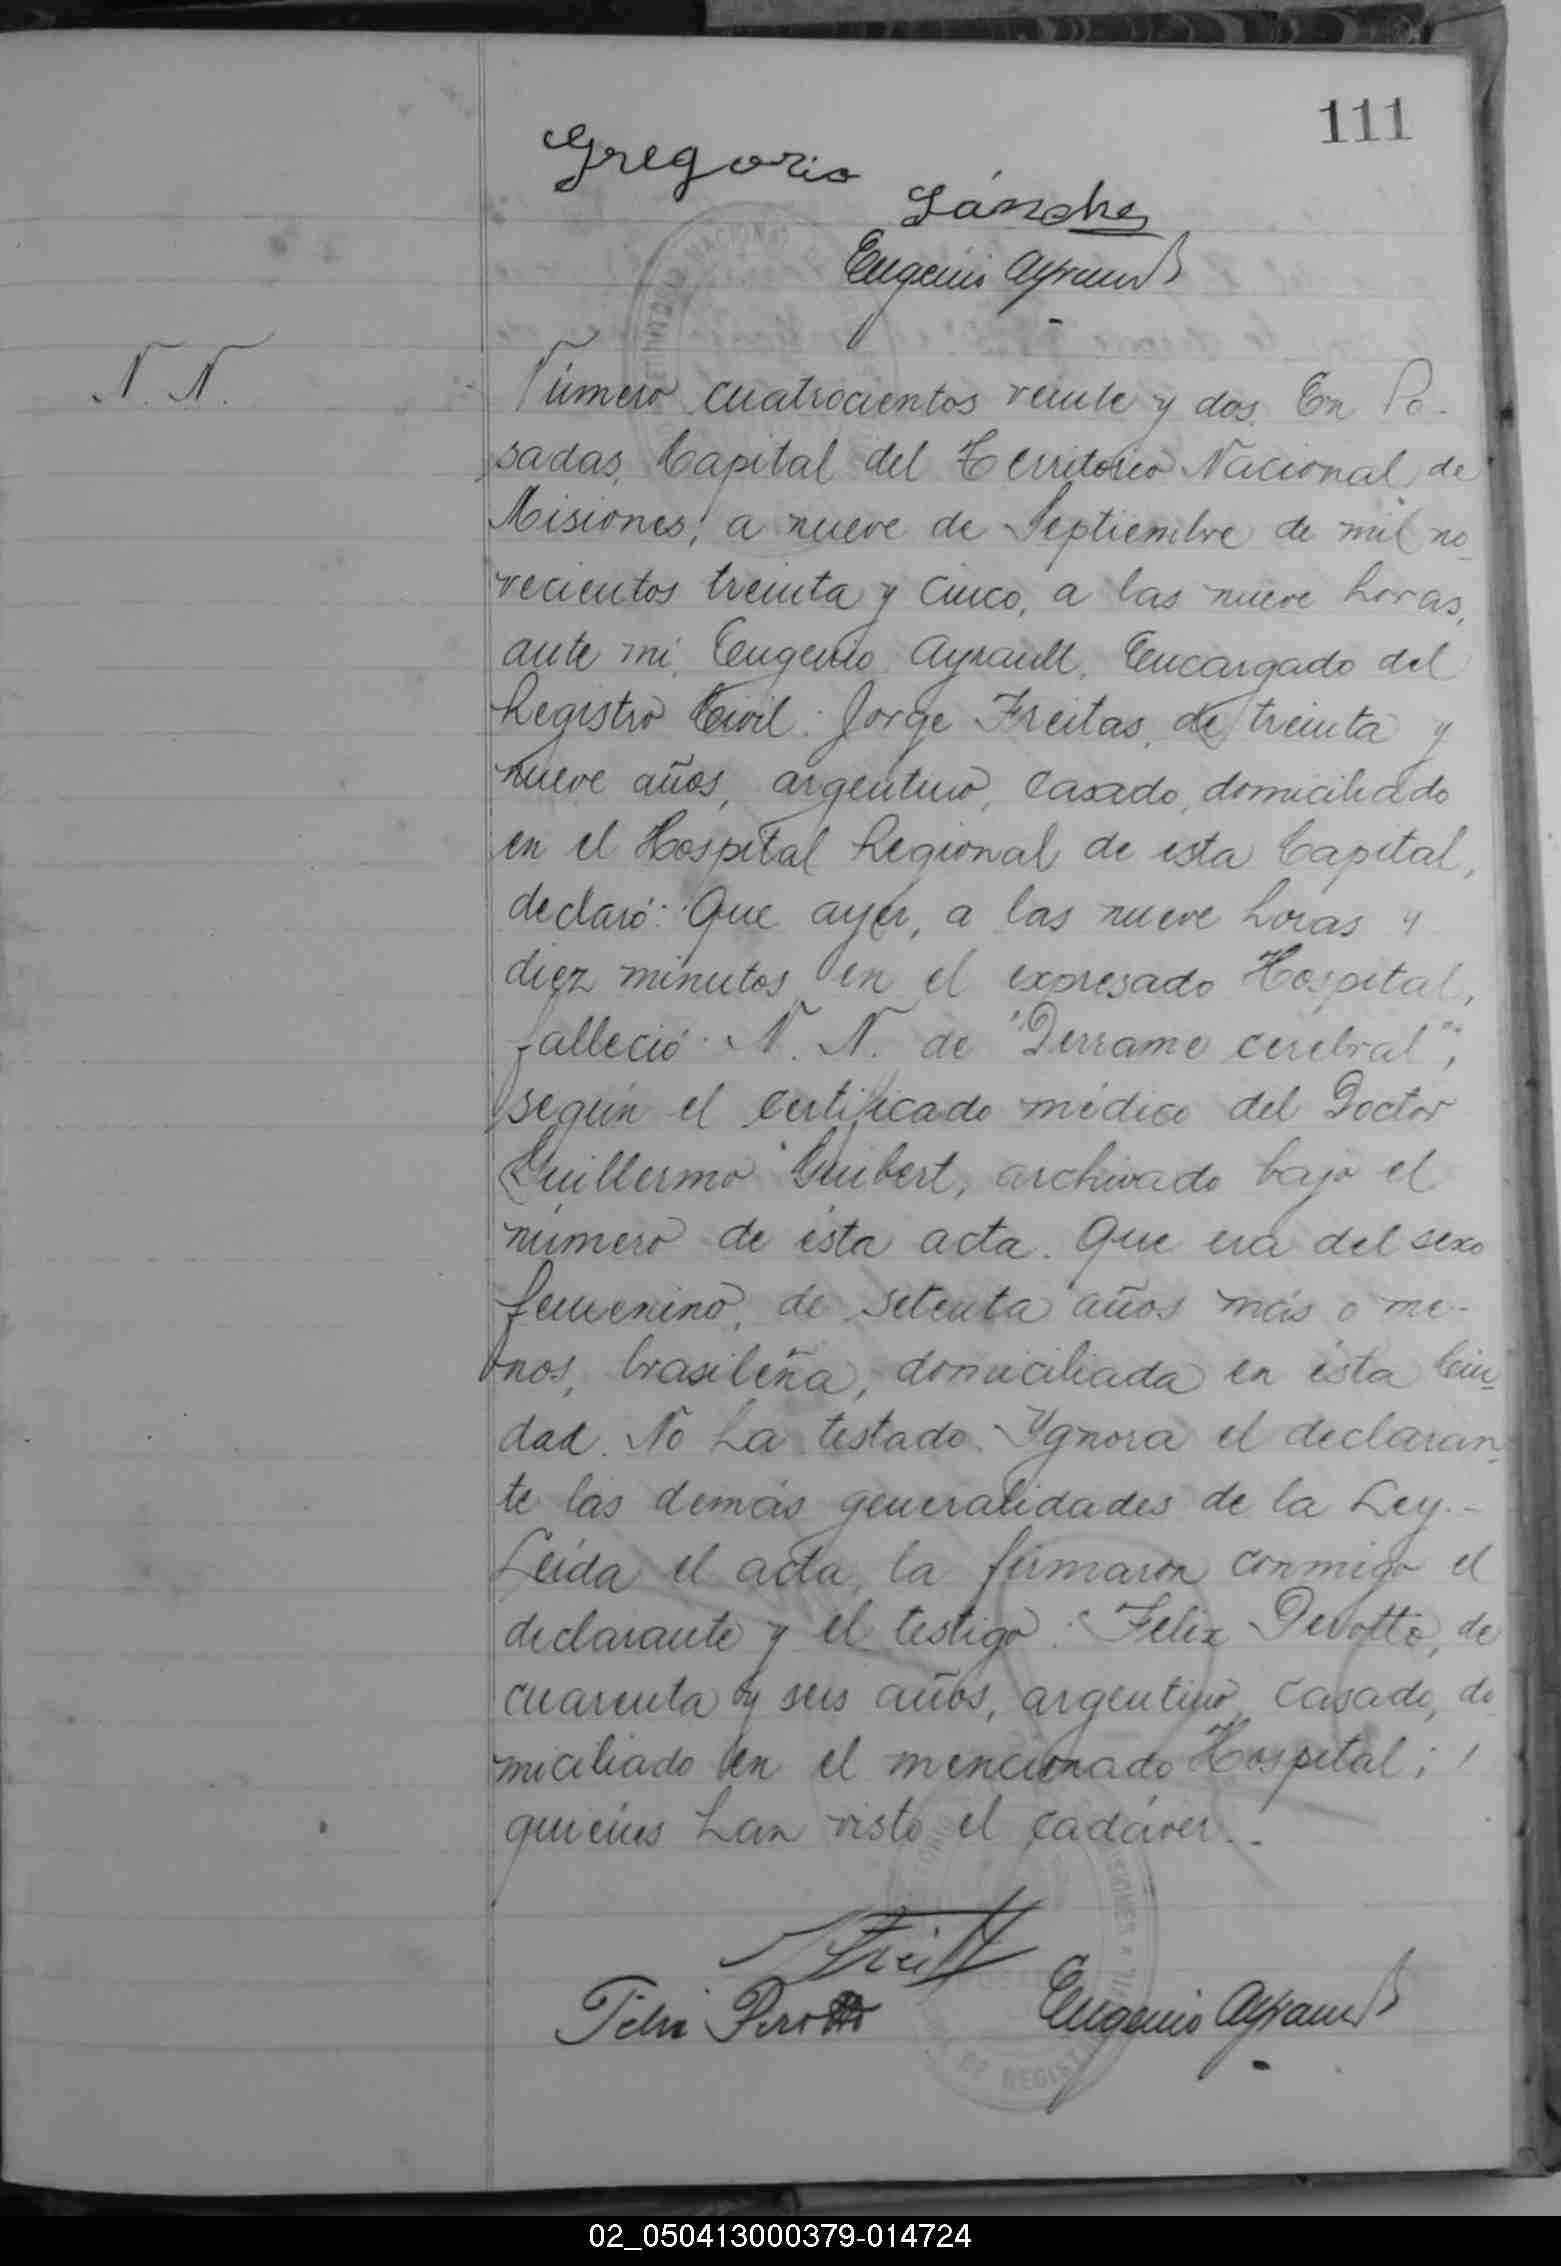 111
Gregorio
Sánchez
Eugenio Ayrault
N. N.
Número cuatrocientos veinte y dos. En Po-
sadas, Capital del Territorio Nacional de
Misiones, a nueve de Septiembre de mil no-
vecientos treinta y cinco, a las nueve horas,
ante mi, Eugenio Ayrault, Encargado del
Registro Civil: Jorge Freitas, de treinta y
nueve años, argentino, casado, domiciliado
en el Hospital Regional de esta Capital,
declaró: Que ayer, a las nueve horas y
diez minutos en el expresado Hospital,
falleció N. N. de "Derrame cerebral",
según el certificado médico del Doctor
Guillermo Guibert, archivado bajo el
número de ésta acta. Que era del sexo
femenino, de setenta años más o me-
nos, brasileña, domiciliada en ésta Ciu-
dad. No ha testado. Ygnora el declaran-
te las demás generalidades de la Ley.-
Leída el acta, la firmaron conmigo el
declarante y el testigo: Felix Perotto, de
cuarenta y seis años, argentino, casado, do
miciliado en el mencionado Hospital;
quiénes han visto el cadáver.-
Felix Perotto
Eugenio Ayrault
02_050413000379-014724